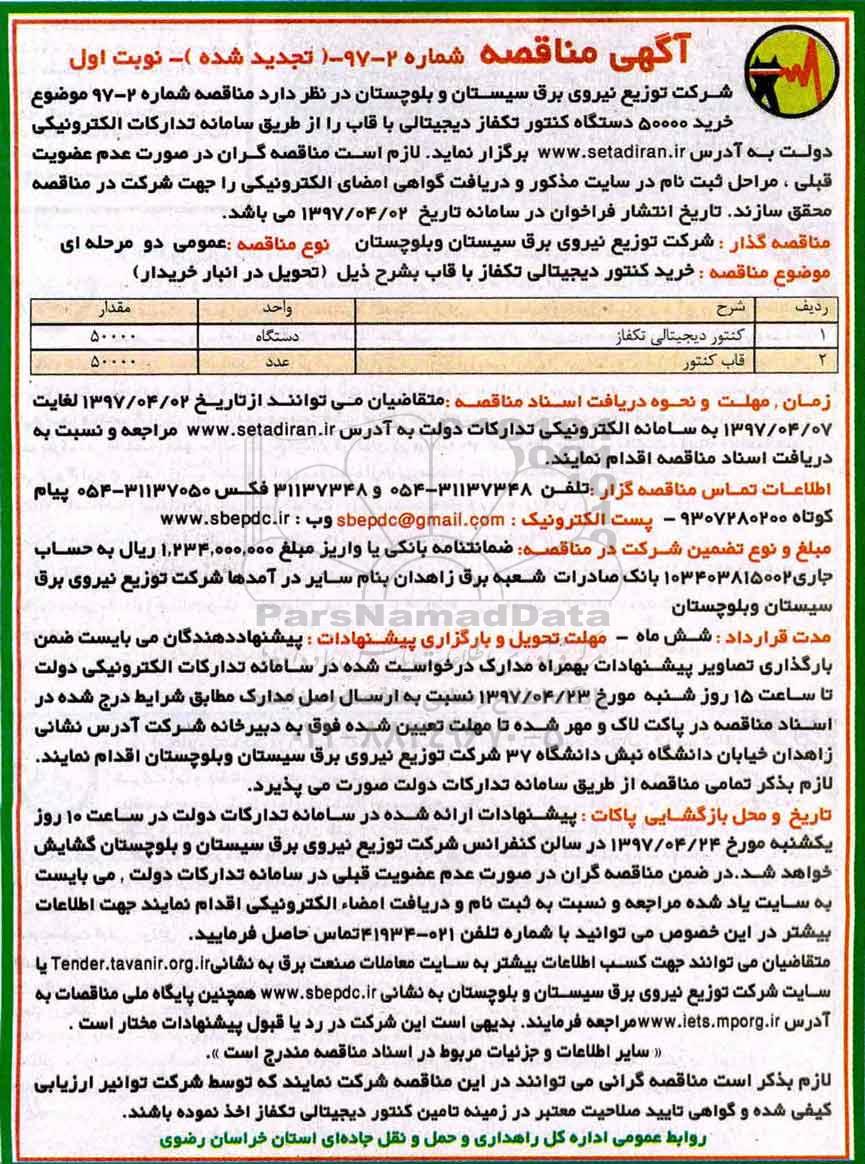 آگهی مناقصه شماره ۲-۹۷-( تجدید شده )- نوبت اول
شرکت توزیع نیروی برق سیستان و بلوچستان در نظر دارد مناقصه شماره ۲-۹۷ موضوع
خرید ۵۰۰۰۰ دستگاه کنتور تکفاز دیجیتالی با قاب را از طریق سامانه تدارکات الکترونیکی
دولت به آدرس www.setadiran.ir برگزار نماید. لازم است مناقصه گران در صورت عدم عضویت
قبلی ، مراحل ثبت نام در سایت مذکور و دریافت گواهی امضای الکترونیکی را جهت شرکت در مناقصه
محقق سازند. تاریخ انتشار فراخوان در سامانه تاریخ ۱۳۹۷/۰۴/۰۲ می باشد.
مناقصه گذار : شرکت توزیع نیروی برق سیستان وبلوچستان نوع مناقصه :عمومی دو مرحله ای
موضوع مناقصه : خرید کنتور دیجیتالی تکفاز با قاب بشرح ذیل (تحویل در انبار خریدار)
ردیف شرح واحد مقدار
۱ کنتور دیجیتالی تکفاز دستگاه ۵۰۰۰۰
۲ قاب کنتور عدد ۵۰۰۰۰
زمان , مهلت و نحوه دریافت اسناد مناقصه :متقاضیان می توانند ازتاریخ ۱۳۹۷/۰۴/۰۲ لغایت
۱۳۹۷/۰۴/۰۷ به سامانه الکترونیکی تدارکات دولت به آدرس www.setadiran.ir مراجعه و نسبت به
دریافت اسناد مناقصه اقدام نمایند.
اطلاعات تماس مناقصه گزار :تلفن ۳۱۱۳۷۳۴۸-۰۵۴ و ۳۱۱۳۷۳۴۸ فکس ۳۱۱۳۷۰۵۰-۰۵۴ پیام
کوتاه ۹۳۰۷۲۸۰۲۰۰ - پست الکترونیک : sbepdc@gmail.com وب : www.sbepdc.ir
مبلغ و نوع تضمین شرکت در مناقصه: ضمانتنامه بانکی یا واریز مبلغ ۱,۲۳۴,۰۰۰,۰۰۰ ریال به حساب
جاری۱۰۳۴۰۳۸۱۵۰۰۲ بانک صادرات شعبه برق زاهدان بنام سایر در آمدها شرکت توزیع نیروی برق
سیستان وبلوچستان
ParsNamadData
مدت قرارداد : شش ماه - مهلت تحویل و بارگزاری پیشنهادات : پیشنهاددهندگان می بایست ضمن
بارگذاری تصاویر پیشنهادات بهمراه مدارک درخواست شده در سامانه تدارکات الکترونیکی دولت
تا ساعت ۱۵ روز شنبه مورخ ۱۳۹۷/۰۴/۲۳ نسبت به ارسال اصل مدارک مطابق شرایط درج شده در
اسناد مناقصه در پاکت لاک و مهر شده تا مهلت تعیین شده فوق به دبیرخانه شرکت آدرس نشانی
زاهدان خیابان دانشگاه نبش دانشگاه ۳۷ شرکت توزیع نیروی برق سیستان وبلوچستان اقدام نمایند.
لازم بذکر تمامی مناقصه از طریق سامانه تدارکات دولت صورت می پذیرد.
تاریخ و محل بازگشایی پاکات : پیشنهادات ارائه شده در سامانه تدارکات دولت در ساعت ۱۰ روز
یکشنبه مورخ ۱۳۹۷/۰۴/۲۴ در سالن کنفرانس شرکت توزیع نیروی برق سیستان و بلوچستان گشایش
خواهد شد.در ضمن مناقصه گران در صورت عدم عضویت قبلی در سامانه تدارکات دولت , می بایست
به سایت یاد شده مراجعه و نسبت به ثبت نام و دریافت امضاء الکترونیکی اقدام نمایند جهت اطلاعات
بیشتر در این خصوص می توانید با شماره تلفن ۰۲۱-۴۱۹۳۴تماس حاصل فرمایید.
متقاضیان می توانند جهت کسب اطلاعات بیشتر به سایت معاملات صنعت برق به نشانیTender.tavanir.org.ir یا
سایت شرکت توزیع نیروی برق سیستان و بلوچستان به نشانی www.sbepdc.ir همچنین پایگاه ملی مناقصات به
آدرس www.iets.mporg.irمراجعه فرمایند. بدیهی است این شرکت در رد یا قبول پیشنهادات مختار است .
« سایر اطلاعات و جزئیات مربوط در اسناد مناقصه مندرج است ».
لازم بذکر است مناقصه گرانی می توانند در این مناقصه شرکت نمایند که توسط شرکت توانیر ارزیابی
کیفی شده و گواهی تایید صلاحیت معتبر در زمینه تامین کنتور دیجیتالی تکفاز اخذ نموده باشند.
روابط عمومی اداره کل راهداری و حمل و نقل جاده‌ای استان خراسان رضوی